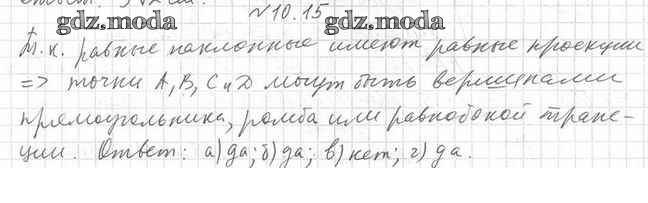 №10.15
gdz.moda gdz.moda
Т.к. равные наклонные имеют равные проекции
=> точки A, B, C и D могут быть вершинами
прямоугольника, ромба или равнобокой трапе-
ции. Ответ: а) да; б) да; в) нет; г) да.